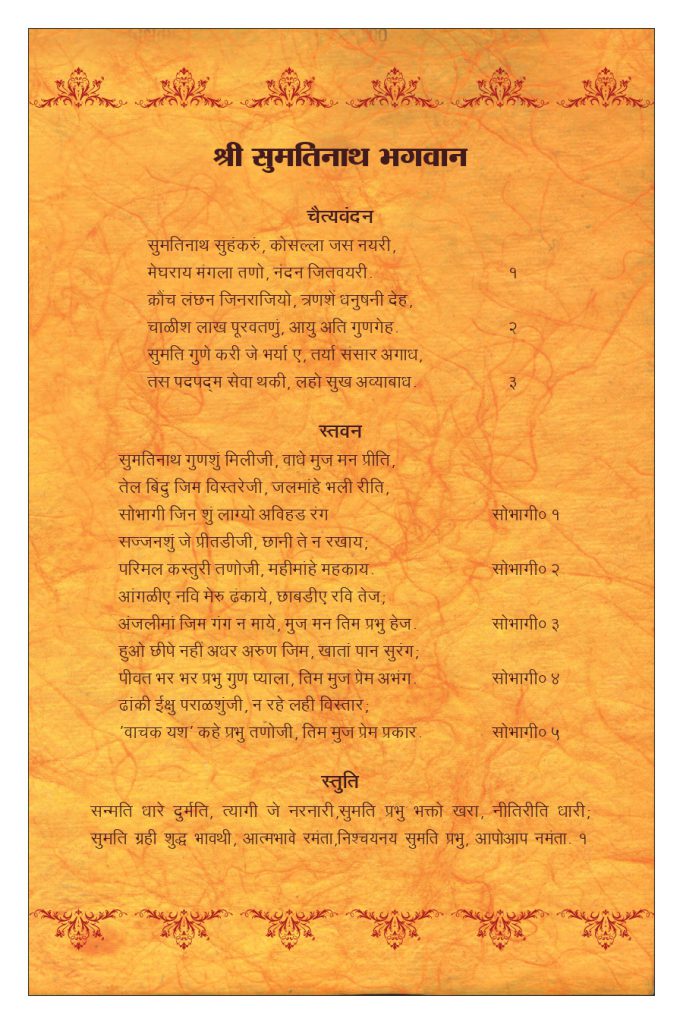 श्री सुमतिनाथ भगवान
चैत्यवंदन
सुमतिनाथ सुहंकरुं, कोसल्ला जस नयरी,
मेघराय मंगला तणो, नंदन जितवयरी. १
क्रौंच लंछन जिनराजियो, त्रणशे धनुषनी देह,
चाळीश लाख पूरवतणुं, आयु अति गुणगेह. २
सुमति गुणे करी जे भर्या ए, तर्या संसार अगाध,
तस पदपद्म सेवा थकी, लहो सुख अव्याबाध. ३
स्तवन
सुमतिनाथ गुणशुं मिलीजी, वाधे मुज मन प्रीति,
तेल बिंदु जिम विस्तरेजी, जलमांहे भली रीति,
सोभागी जिन शुं लाग्यो अविहड रंग सोभागी० १
सज्जनशुं जे प्रीतडीजी, छानी ते न रखाय;
परिमल कस्तुरी तणोजी, महीमांहे महकाय. सोभागी० २
आंगळीए नवि मेरु ढंकाये, छाबडीए रवि तेज;
अंजलीमां जिम गंग न माये, मुज मन तिम प्रभु हेज. सोभागी० ३
हुओ छीपे नहीं अधर अरुण जिम, खातां पान सुरंग;
पीवत भर भर प्रभु गुण प्याला, तिम मुज प्रेम अभंग. सोभागी० ४
ढांकी ईक्षु पराळशुंजी, न रहे लही विस्तार;
‘वाचक यश’ कहे प्रभु तणोजी, तिम मुज प्रेम प्रकार. सोभागी० ५
स्तुति
सन्मति धारे दुर्मति, त्यागी जे नरनारी,सुमति प्रभु भक्तो खरा, नीतिरीति धारी;
सुमति ग्रही शुद्ध भावथी, आत्मभावे रमंता,निश्चयनय सुमति प्रभु, आपोआप नमंता. १